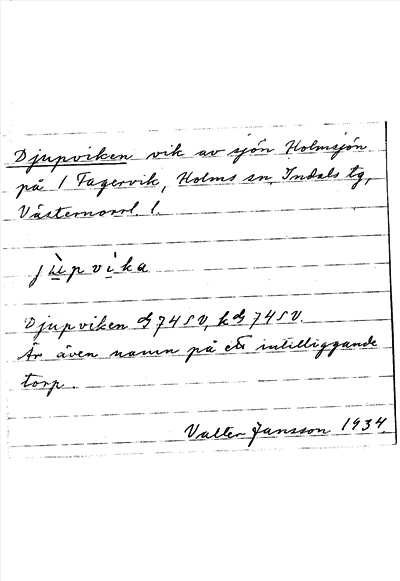 Djupviken vik av sjön Holmsjön
på / Fagervik, Holms sn, Indals tg,
Västernorrl. l.
jùpvìka
Djupviken 74 SV, k 74 SV.
Är även namn på ett intilliggande
torp.
Valter Jansson 1934.